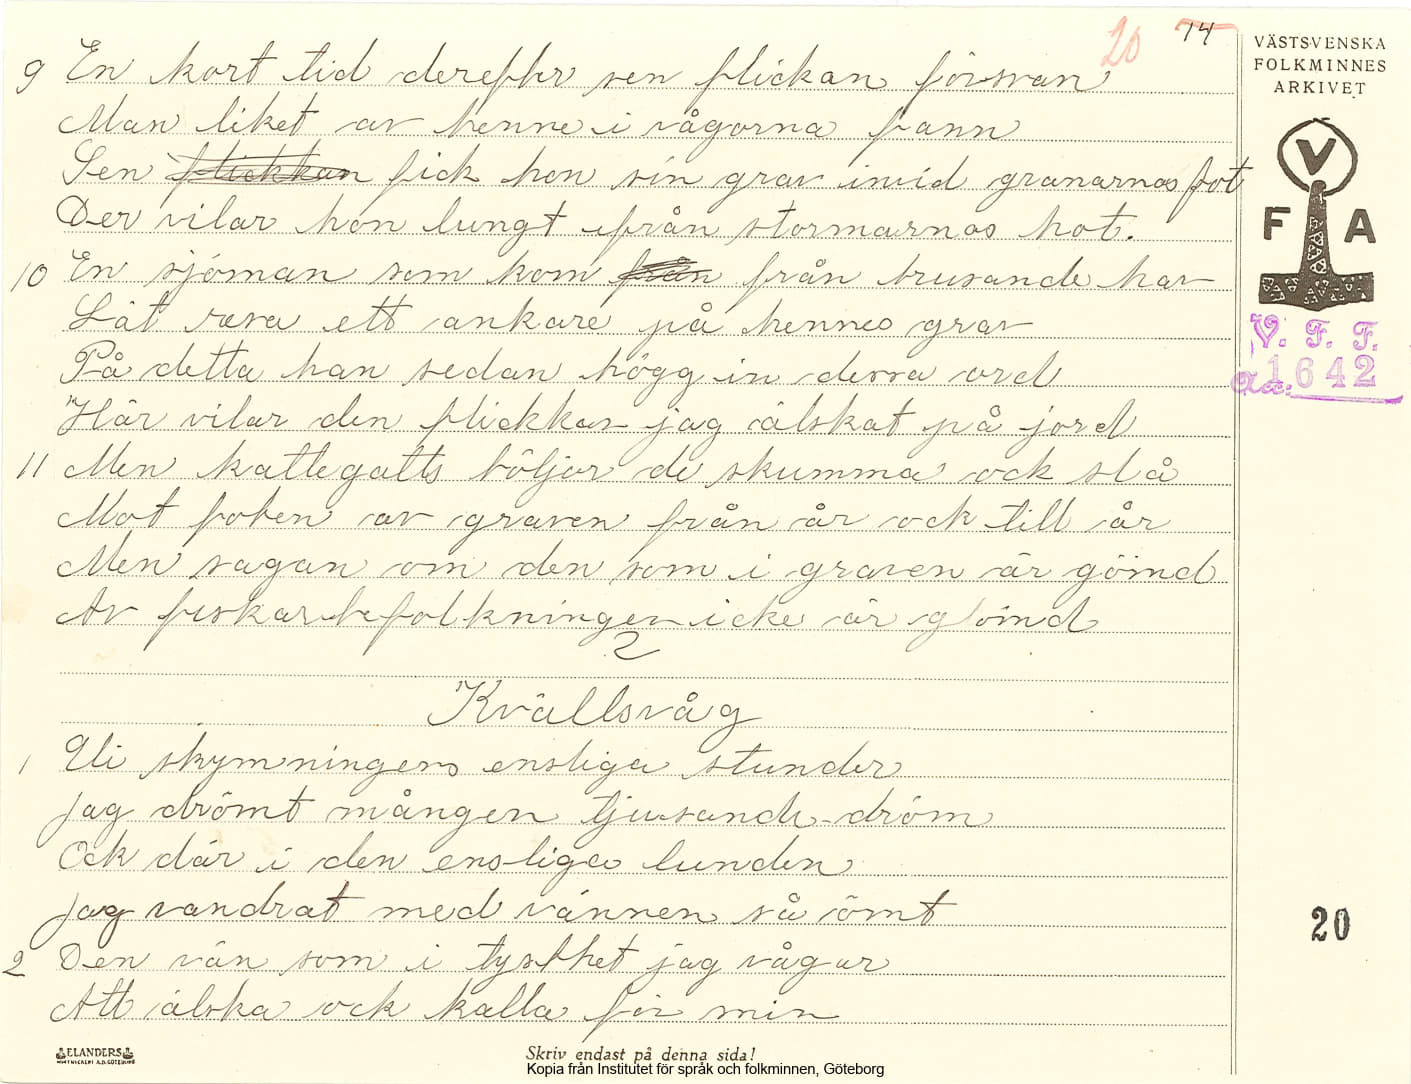 20 14
VÄSTSVENSKA
FOLKMINNES
ARKIVET
V
F A
V. F. F.
1642
9 En kort tid derefter sen flickan försvan
Man liket av henne i vågorna fann
Sen flickkan fick hon sin grav invid granarnas fot
Der vilar hon lungt ifrån stormarnas hot.
10 En sjöman som kom från från brusande hav
Låt resa ett ankare på hennes grav
På detta han sedan högg in dessa ord
"Här vilar den flickkan jag älskat på jord
11 Men kattegatts böljor de skumma ock slå
Mot foten av graven från år ock till år
Men sagan om den som i graven är gömd
Av fiskarbefolkningen icke är glömd
2
Kvällsvåg
1 Uti skymningens ensliga stunder
Jag drömt mången tjusande dröm
Ock där i den ensliga lunden
Jag vandrat med vännen så ömt
2 Den vän som i tysthet jag vågar
Att älska ock kalla för min
20
ELANDERS
Skriv endast på denna sida!
Kopia från Institutet för språk och folkminnen, Göteborg